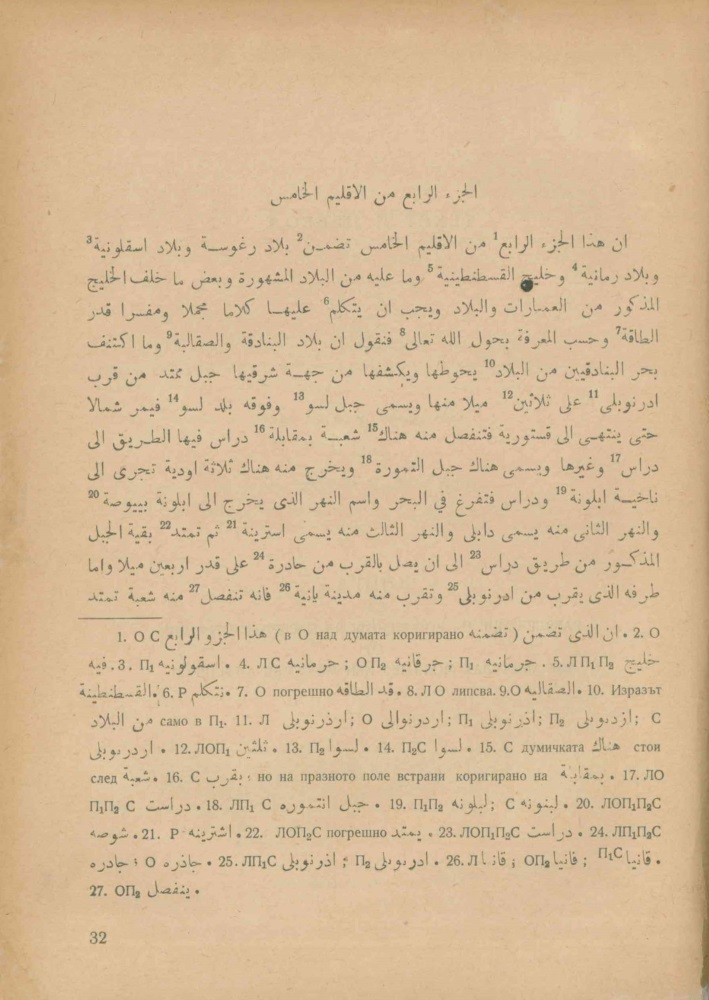 الجزء الرابع من الاقليم الخامس
ان هذا الجزء الرابع¹ من الاقليم الخامس تضمـن² بلاد رغوســة وبلاد اسقلونية³
وبلاد رمانية⁴ وخليج القسطنطينية⁵ وما عليه من البلاد المشهورة وبعض ما خلف الخليج
المذكور من العمارات والبلاد ويجب ان يتكلم⁶ عليهـا كلاما مجملا ومفسرا قدر
الطاقة⁷ وحسب المعرفة بحول الله تعالى⁸ فنقول ان بلاد البنادقة والصقالبة⁹ وما اكتنف
بحر البنادقيين من البلاد¹⁰ يحوطها ويكشفها من جهـة شرقيها جبل ممتد من قرب
ادرنوبلى¹¹ على ثلاثين¹² ميلا منها ويسمى جبل لسو¹³ وفوقه بلد لسو¹⁴ فيمر شمالا
حتى ينتهـى الى قستورية فتنفصل منه هناك¹⁵ شعبـة بمقابلة¹⁶ دراس فيها الطـريق الى
دراس¹⁷ وغيرها ويسمى هناك جبل التمورة¹⁸ ويخرج منه هناك ثلاثة اودية تجرى الى
ناحيـة ابلونة¹⁹ ودراس فتفرغ في البحر واسم النهر الذى يخرج الى ابلونة بييوصة²⁰
والنهر الثانى منه يسمى دابلى والنهر الثالث منه يسمى استرينة²¹ ثم تمتد²² بقية الجبل
المذكـور من طريـق دراس²³ الى ان يصل بالقرب من جادرة²⁴ على قدر اربعين ميلا واما
طرفه الذى يقرب من ادرنوبلى²⁵ وتقرب منه مدينة يانية²⁶ فانه تنفصل²⁷ منه شعبة تمتد
1. О С هذا الجزو الرابع (в О над думата коригирано تضمنه) ان الذى تضمن. 2. О
فيه. 3. П₁ اسقولونيه. 4. ЛС حرمانيه; ОП₂ جرقانيه; П₁ جرمانيه. 5. ЛП₁П₂ خليج
القسطنطينة. 6. Р نتكلم. 7. О погрешно قد الطاقه. 8. ЛО липсва. 9.О الصقاليه. 10. Изразът
من البلاد само в П₁. 11. Л ارذرنوبلى; О اردرنوالى; П₁ اذرنوبلى; П₂ ازدنوبلى; С
اردرنوبلى. 12. ЛОП₁ ثلثين. 13. П₂ لسوا. 14. П₂С لسوا. 15. С думичката هناك стои
след شعبة. 16. С بقرب; но на празното поле встрани коригирано на بمقابلة. 17. ЛО
П₁П₂ С دراست. 18. ЛП₁ С جبل انتموره. 19. П₁П₂ لبلونه; С لبنونه. 20. ЛОП₁П₂С
شوصه. 21. Р اشترينه. 22. ЛОП₂С погрешно يمتد. 23. ЛОП₁П₂С دراست. 24. ЛП₁П₂С
جادره; О جاذره. 25. ЛП₁С اذرنوبلى; П₂ ادرنوبلى. 26. Л قانا; ОП₂ فانيا; П₁С قانيا.
27. ОП₂ ينفصل.
32